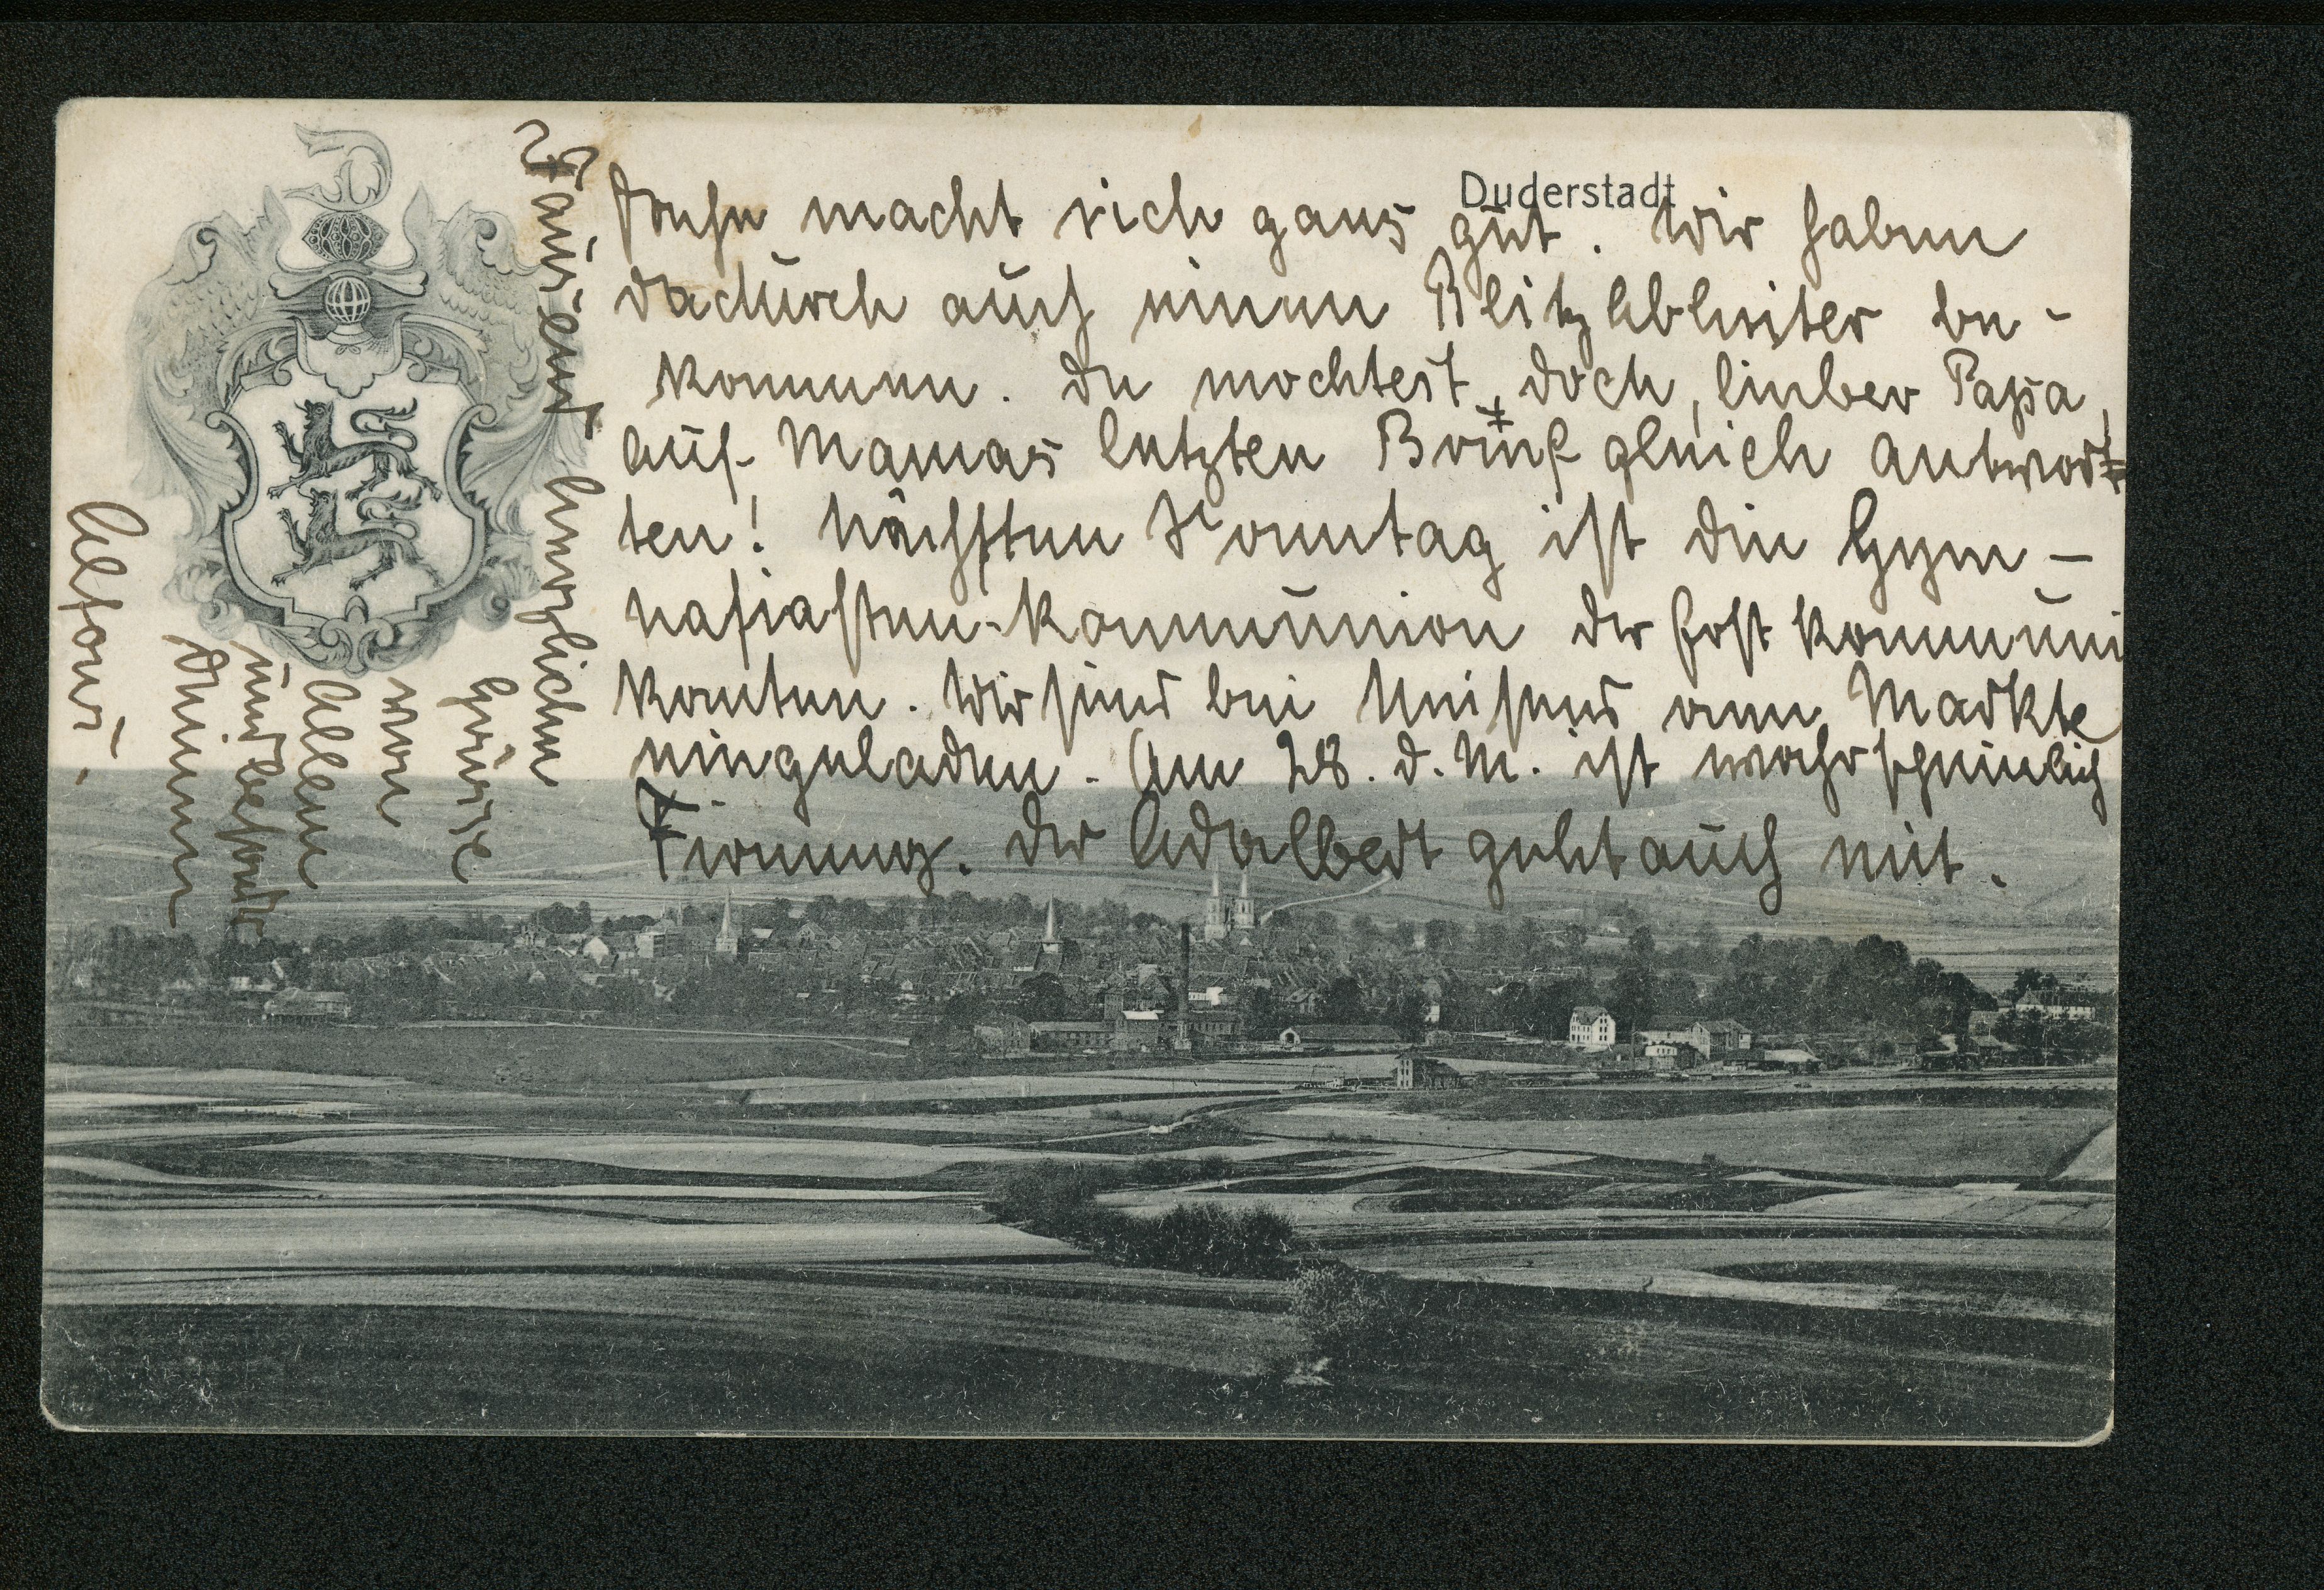 Duderstadt
macht sich ganz gut. Wir haben
dadurch auch einen Blitzableiter be-
kommen. Du mochtest doch, lieber Papa,
auf Mamas letzten Brief gleich antwor-
ten! Nächsten Sonntag ist die Gym-
nasiasten-Kommunion der Erstkommuni
kanten. Wir sind bei am Markte
eingeladen. Am 28. d. M. ist wahrscheinlich
Firmung. Der Adalbert geht auch mit.
Tausend herzlichen
Grüsse
von
Allen
und besonders
Deinem
Alfons.